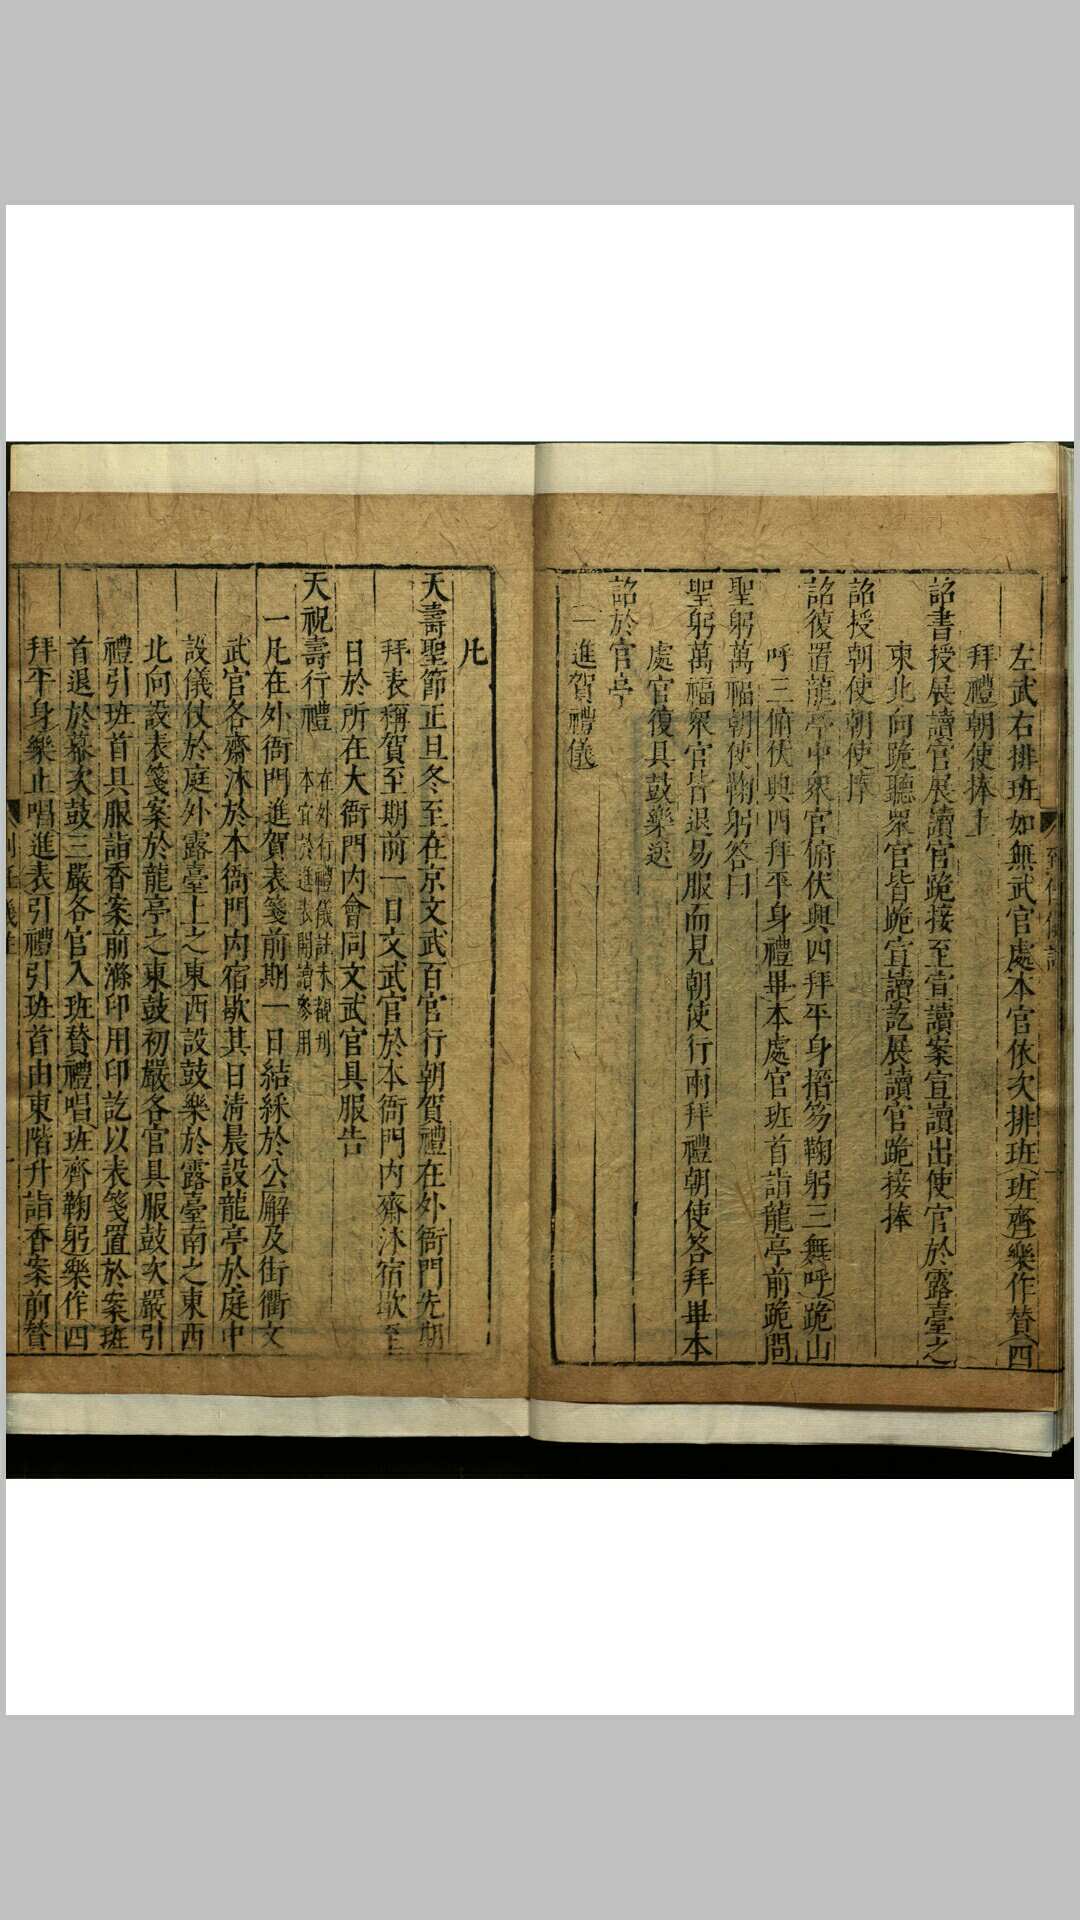 左武右排班如無武官處本官依次排班班齊樂作贊四
拜禮朝使捧上
詔書授展讀官展讀官跪接至宣讀案宣讀出使官於露臺之
東北向跪聽眾官皆跪宣讀訖展讀官跪接捧
詔授朝使朝使捧
詔復置龍亭中眾官俯伏興四拜平身搢笏鞠躬三舞呼跪山
呼三俯伏興四拜平身禮畢本處官班首詣龍亭前跪問
聖躬萬福朝使鞠躬答曰
聖躬萬福眾官皆退易服而見朝使行兩拜禮朝使答拜畢本
處官復具鼓樂送
詔於官亭
一進賀禮儀
凡
天壽聖節正旦冬至在京文武百官行朝賀禮在外衙門先期
拜表稱賀至期前一日文武官於本衙門內齋沐宿歇至
日於所在大衙門內會同文武官具服告
天祝壽行禮
在外行禮儀註未觀刊
本宜於進表開讀參用
一凡在外衙門進賀表箋前期一日結綵於公廨及街衢文
武官各齋沐於本衙門內宿歇其日清晨設龍亭於庭中
設儀仗於庭外露臺上之東西設鼓樂於露臺南之東西
北向設表箋案於龍亭之東鼓初嚴各官具服鼓次嚴引
禮引班首具服詣香案前滌印用印訖以表箋置於案班
首退於幕次鼓三嚴各官入班贊禮唱班齊鞠躬樂作四
拜平身樂止唱進表引禮引班首由東階升詣香案前贊